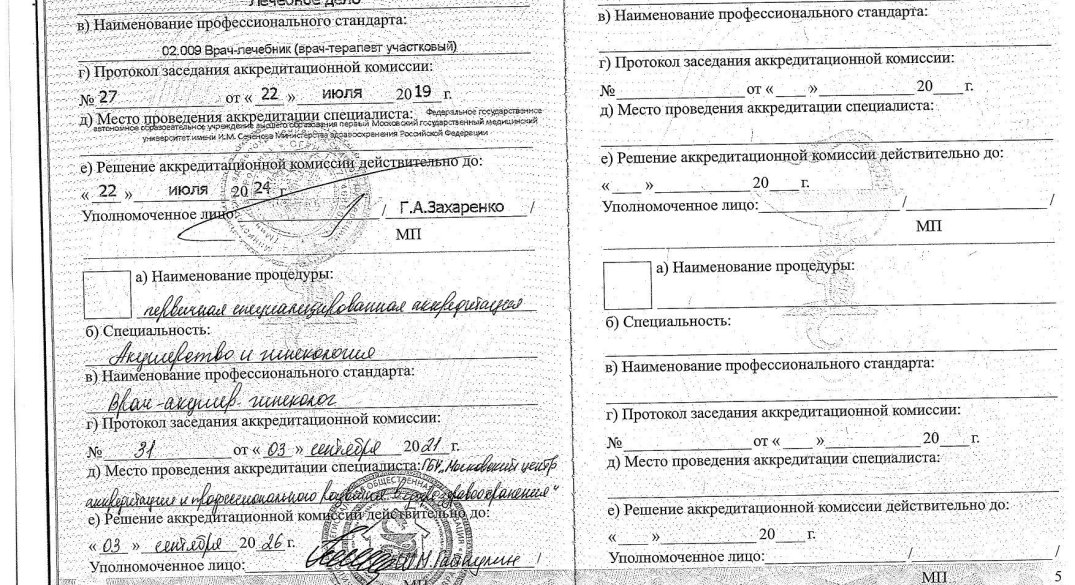 Лечебное дело
в) Наименование профессионального стандарта:
02.009 Врач-лечебник (врач-терапевт участковый)
г) Протокол заседания аккредитационной комиссии:
№ 27 от « 22 » июля 2019 г.
д) Место проведения аккредитации специалиста: Федеральное государственное
автономное образовательное учреждение высшего образования первый Московский государственный медицинский
университет имени И.М. Сеченова Министерства здравоохранения Российской Федерации
е) Решение аккредитационной комиссии действительно до:
« 22 » июля 20 24 г.
Уполномоченное лицо: / Г.А.Захаренко /
МП
а) Наименование процедуры:
первичная специализированная аккредитация
б) Специальность:
Акушерство и гинекология
в) Наименование профессионального стандарта:
Врач-акушер-гинеколог
г) Протокол заседания аккредитационной комиссии:
№ 31 от « 03 » сентября 2021 г.
д) Место проведения аккредитации специалиста: ГБУ „Московский центр
аккредитации и профессионального развития в сфере здравоохранения“
е) Решение аккредитационной комиссии действительно до:
« 03 » сентября 20 26 г.
Уполномоченное лицо: /
МП
в) Наименование профессионального стандарта:
г) Протокол заседания аккредитационной комиссии:
№ от « » 20 г.
д) Место проведения аккредитации специалиста:
е) Решение аккредитационной комиссии действительно до:
« » 20 г.
Уполномоченное лицо: / /
МП
а) Наименование процедуры:
б) Специальность:
в) Наименование профессионального стандарта:
г) Протокол заседания аккредитационной комиссии:
№ от « » 20 г.
д) Место проведения аккредитации специалиста:
е) Решение аккредитационной комиссии действительно до:
« » 20 г.
Уполномоченное лицо: / /
МП
5